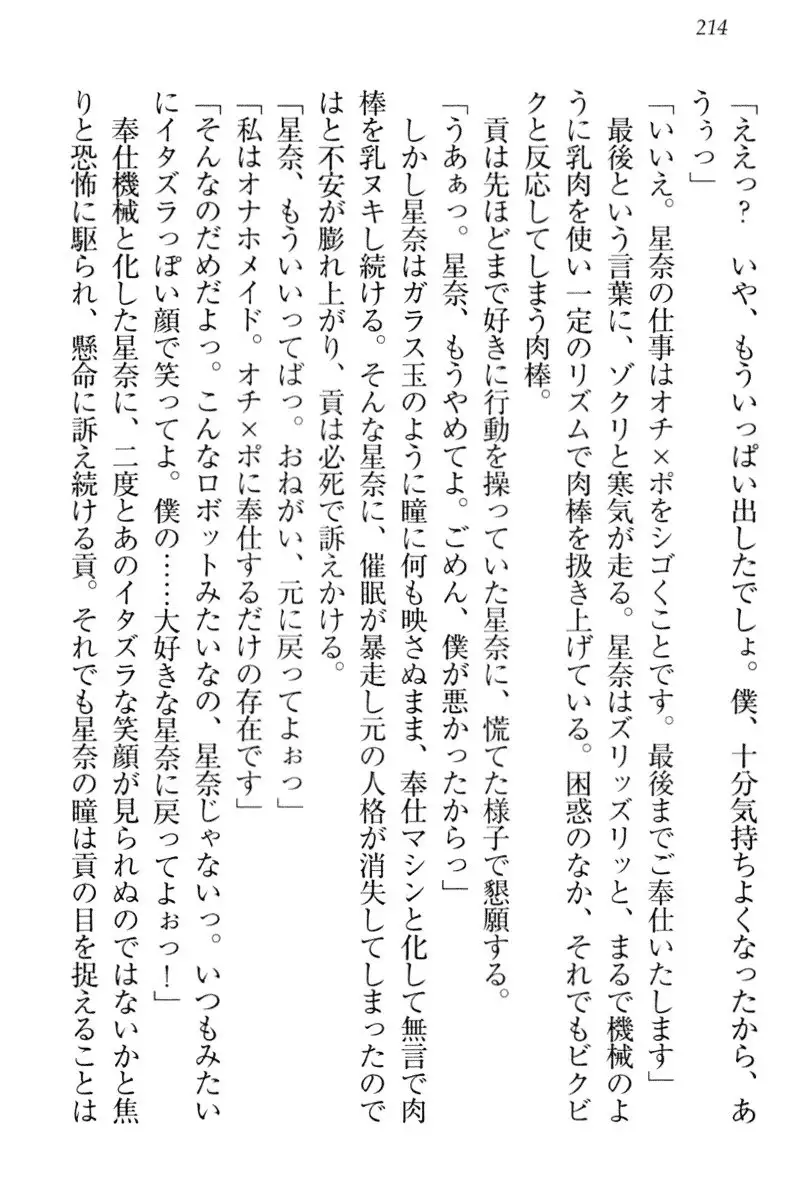 214
「ええっ？　いや、もういっぱい出したでしょ。僕、十分気持ちよくなったから、あ
うぅっ」
「いいえ。星奈の仕事はオチ×ポをシゴくことです。最後までご奉仕いたします」
最後という言葉に、ゾクリと寒気が走る。星奈はズリッズリッと、まるで機械のよ
うに乳肉を使い一定のリズムで肉棒を扱き上げている。困惑のなか、それでもビクビ
クと反応してしまう肉棒。
貢は先ほどまで好きに行動を操っていた星奈に、慌てた様子で懇願する。
「うあぁっ。星奈、もうやめてよ。ごめん、僕が悪かったからっ」
しかし星奈はガラス玉のように瞳に何も映さぬまま、奉仕マシンと化して無言で肉
棒を乳ヌキし続ける。そんな星奈に、催眠が暴走し元の人格が消失してしまったので
はと不安が膨れ上がり、貢は必死で訴えかける。
「星奈、もういいってばっ。おねがい、元に戻ってよぉっ」
「私はオナホメイド。オチ×ポに奉仕するだけの存在です」
「そんなのだめだよっ。こんなロボットみたいなの、星奈じゃないっ。いつもみたい
にイタズラっぽい顔で笑ってよ。僕の……大好きな星奈に戻ってよぉっ！」
奉仕機械と化した星奈に、二度とあのイタズラな笑顔が見られぬのではないかと焦
りと恐怖に駆られ、懸命に訴え続ける貢。それでも星奈の瞳は貢の目を捉えることは